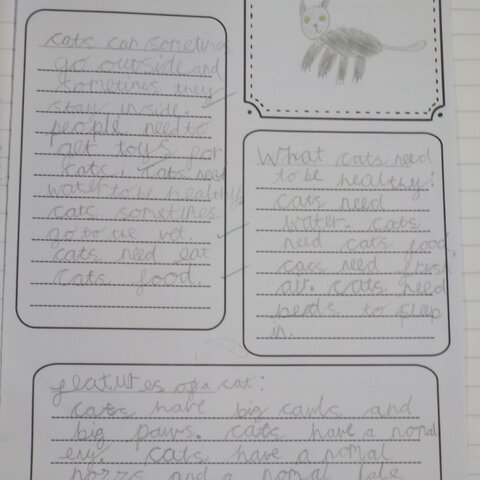 cats can sometimes
go outside and
sometimes they
stay inside.
people need to
get toys for
cats. cats need
water to be healthy.
cats sometimes
go to the vet.
cats need eat
cats food.
What cats need
to be healthy:
cats need
water. cats
need cats food.
cats need fresh
air. cats need
beads to slap
in.
features of a cat:
cats have big cawls and
big paws. cats have a nomal
eny. cats have a nomal
nozzs and a nomal tale